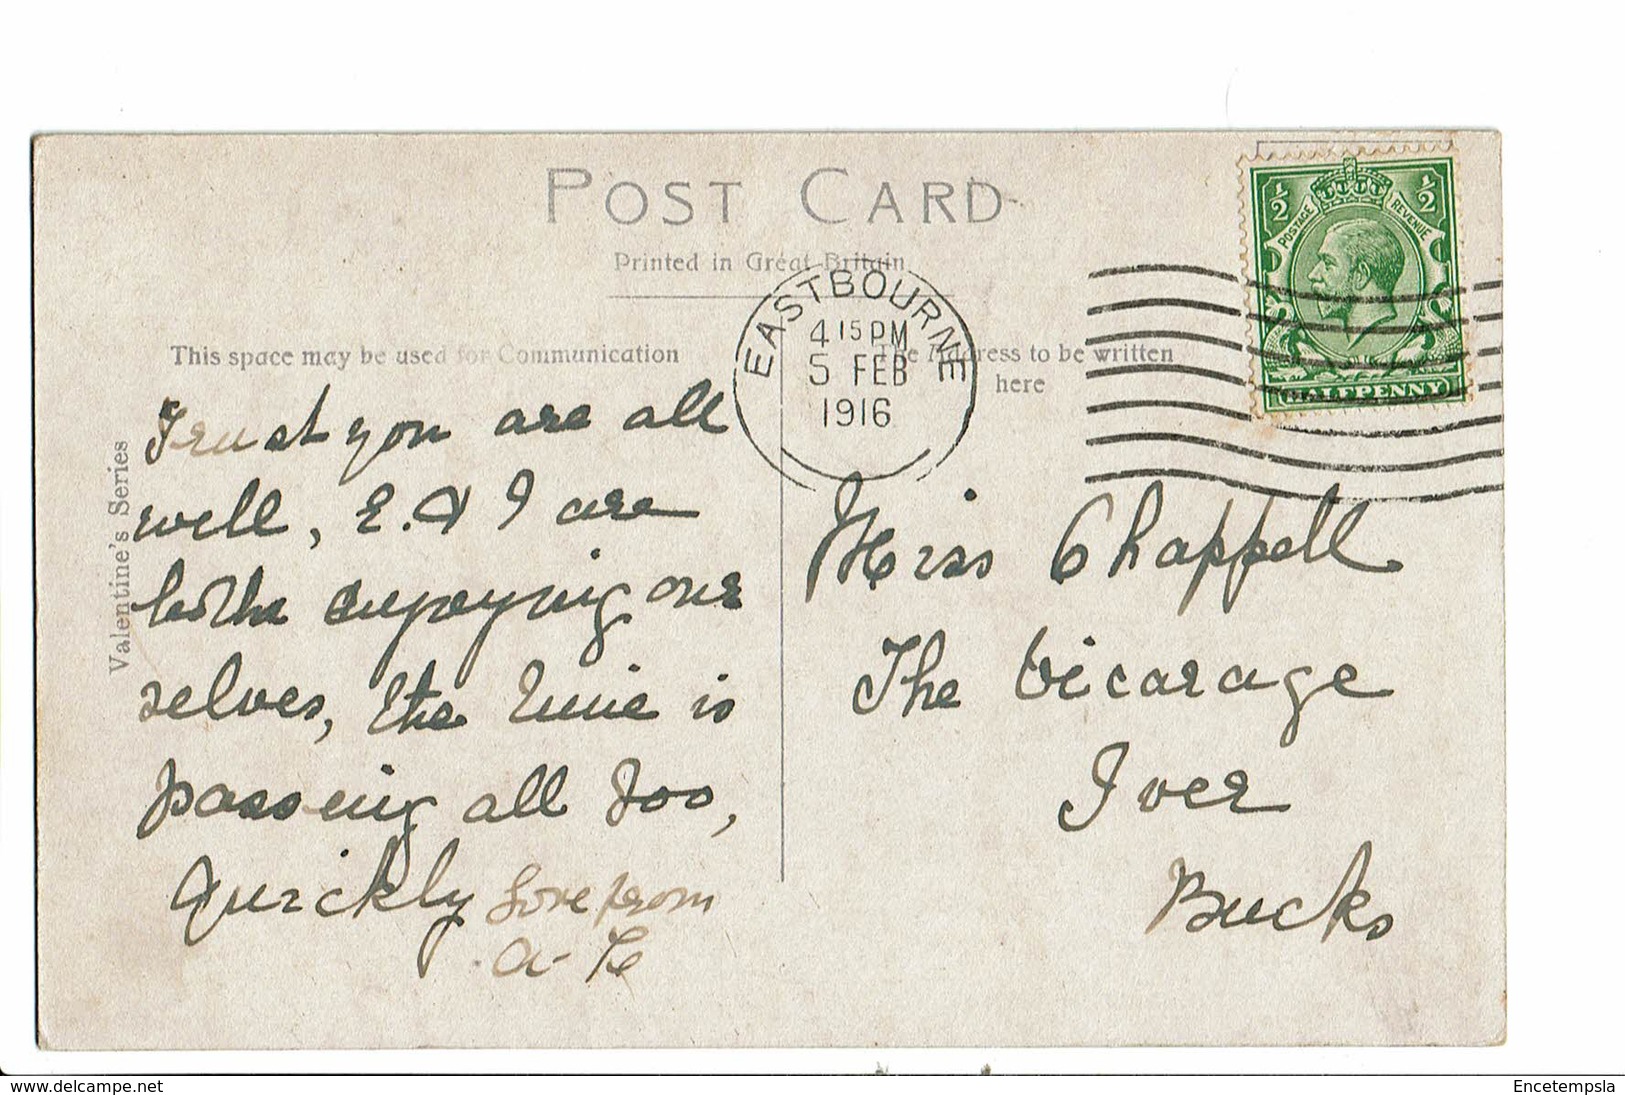 POST CARD
Printed in Great Britain
This space may be used for Communication
The Address to be written
here
Valentine's Series
EASTBOURNE
4 15 PM
5 FEB
1916
½ ½
POSTAGE REVENUE
HALFPENNY
Trust you are all
well, E. & I are
both enjoying our
selves, the time is
passing all too,
Quickly love from
Miss Chappell
The Vicarage
Iver
Bucks
www.delcampe.net
Encetempsla